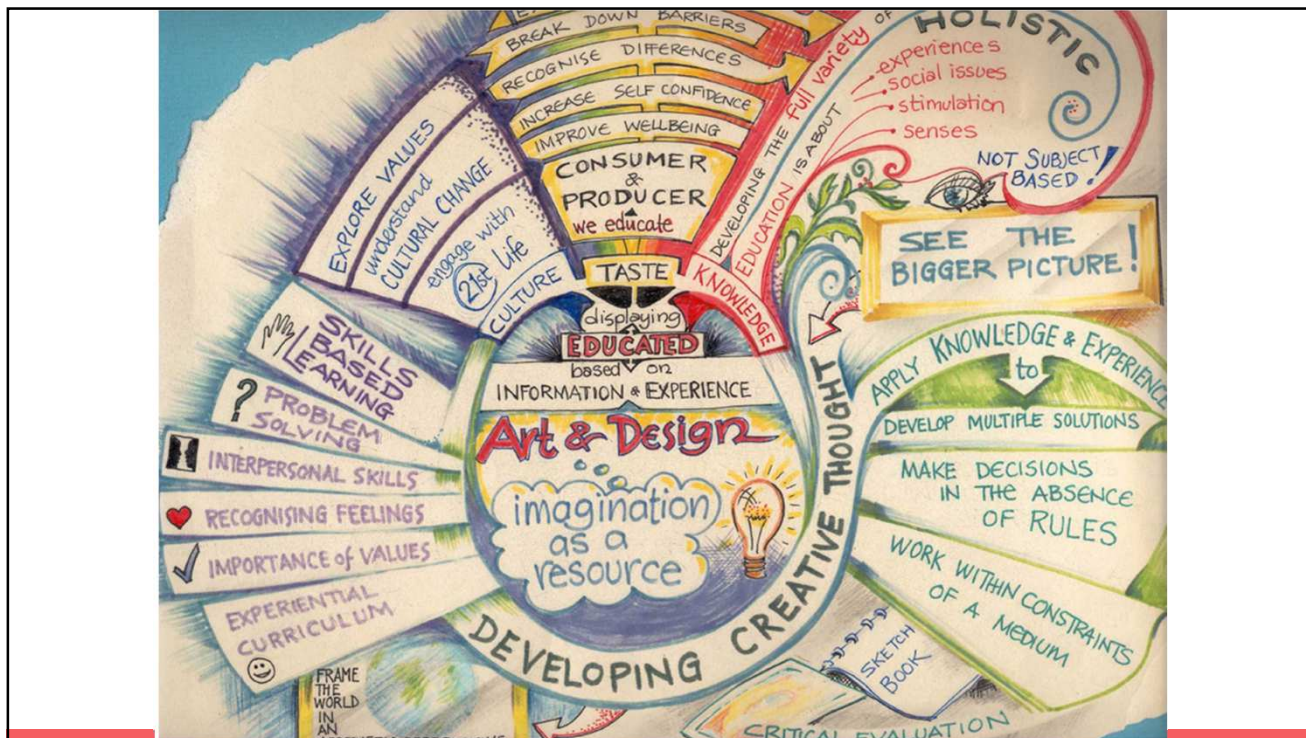 BREAK DOWN BARRIERS
RECOGNISE DIFFERENCES
INCREASE SELF CONFIDENCE
IMPROVE WELLBEING
CONSUMER
&
PRODUCER
we educate
TASTE
EXPLORE VALUES
understand
CULTURAL CHANGE
engage with
21st Life
CULTURE
DEVELOPING THE full variety OF
EDUCATION IS ABOUT
KNOWLEDGE
HOLISTIC
experiences
social issues
stimulation
senses
NOT SUBJECT
BASED!
SEE THE
BIGGER PICTURE!
displaying
EDUCATED
based on
INFORMATION & EXPERIENCE
Art & Design
imagination
as a
resource
DEVELOPING CREATIVE THOUGHT
SKILLS
BASED
LEARNING
?
PROBLEM
SOLVING
INTERPERSONAL SKILLS
RECOGNISING FEELINGS
IMPORTANCE of VALUES
EXPERIENTIAL
CURRICULUM
APPLY KNOWLEDGE & EXPERIENCE
to
DEVELOP MULTIPLE SOLUTIONS
MAKE DECISIONS
IN THE ABSENCE
OF RULES
WORK WITHIN CONSTRAINTS
OF A MEDIUM
SKETCH
BOOK
CRITICAL EVALUATION
FRAME
THE
WORLD
IN
AN